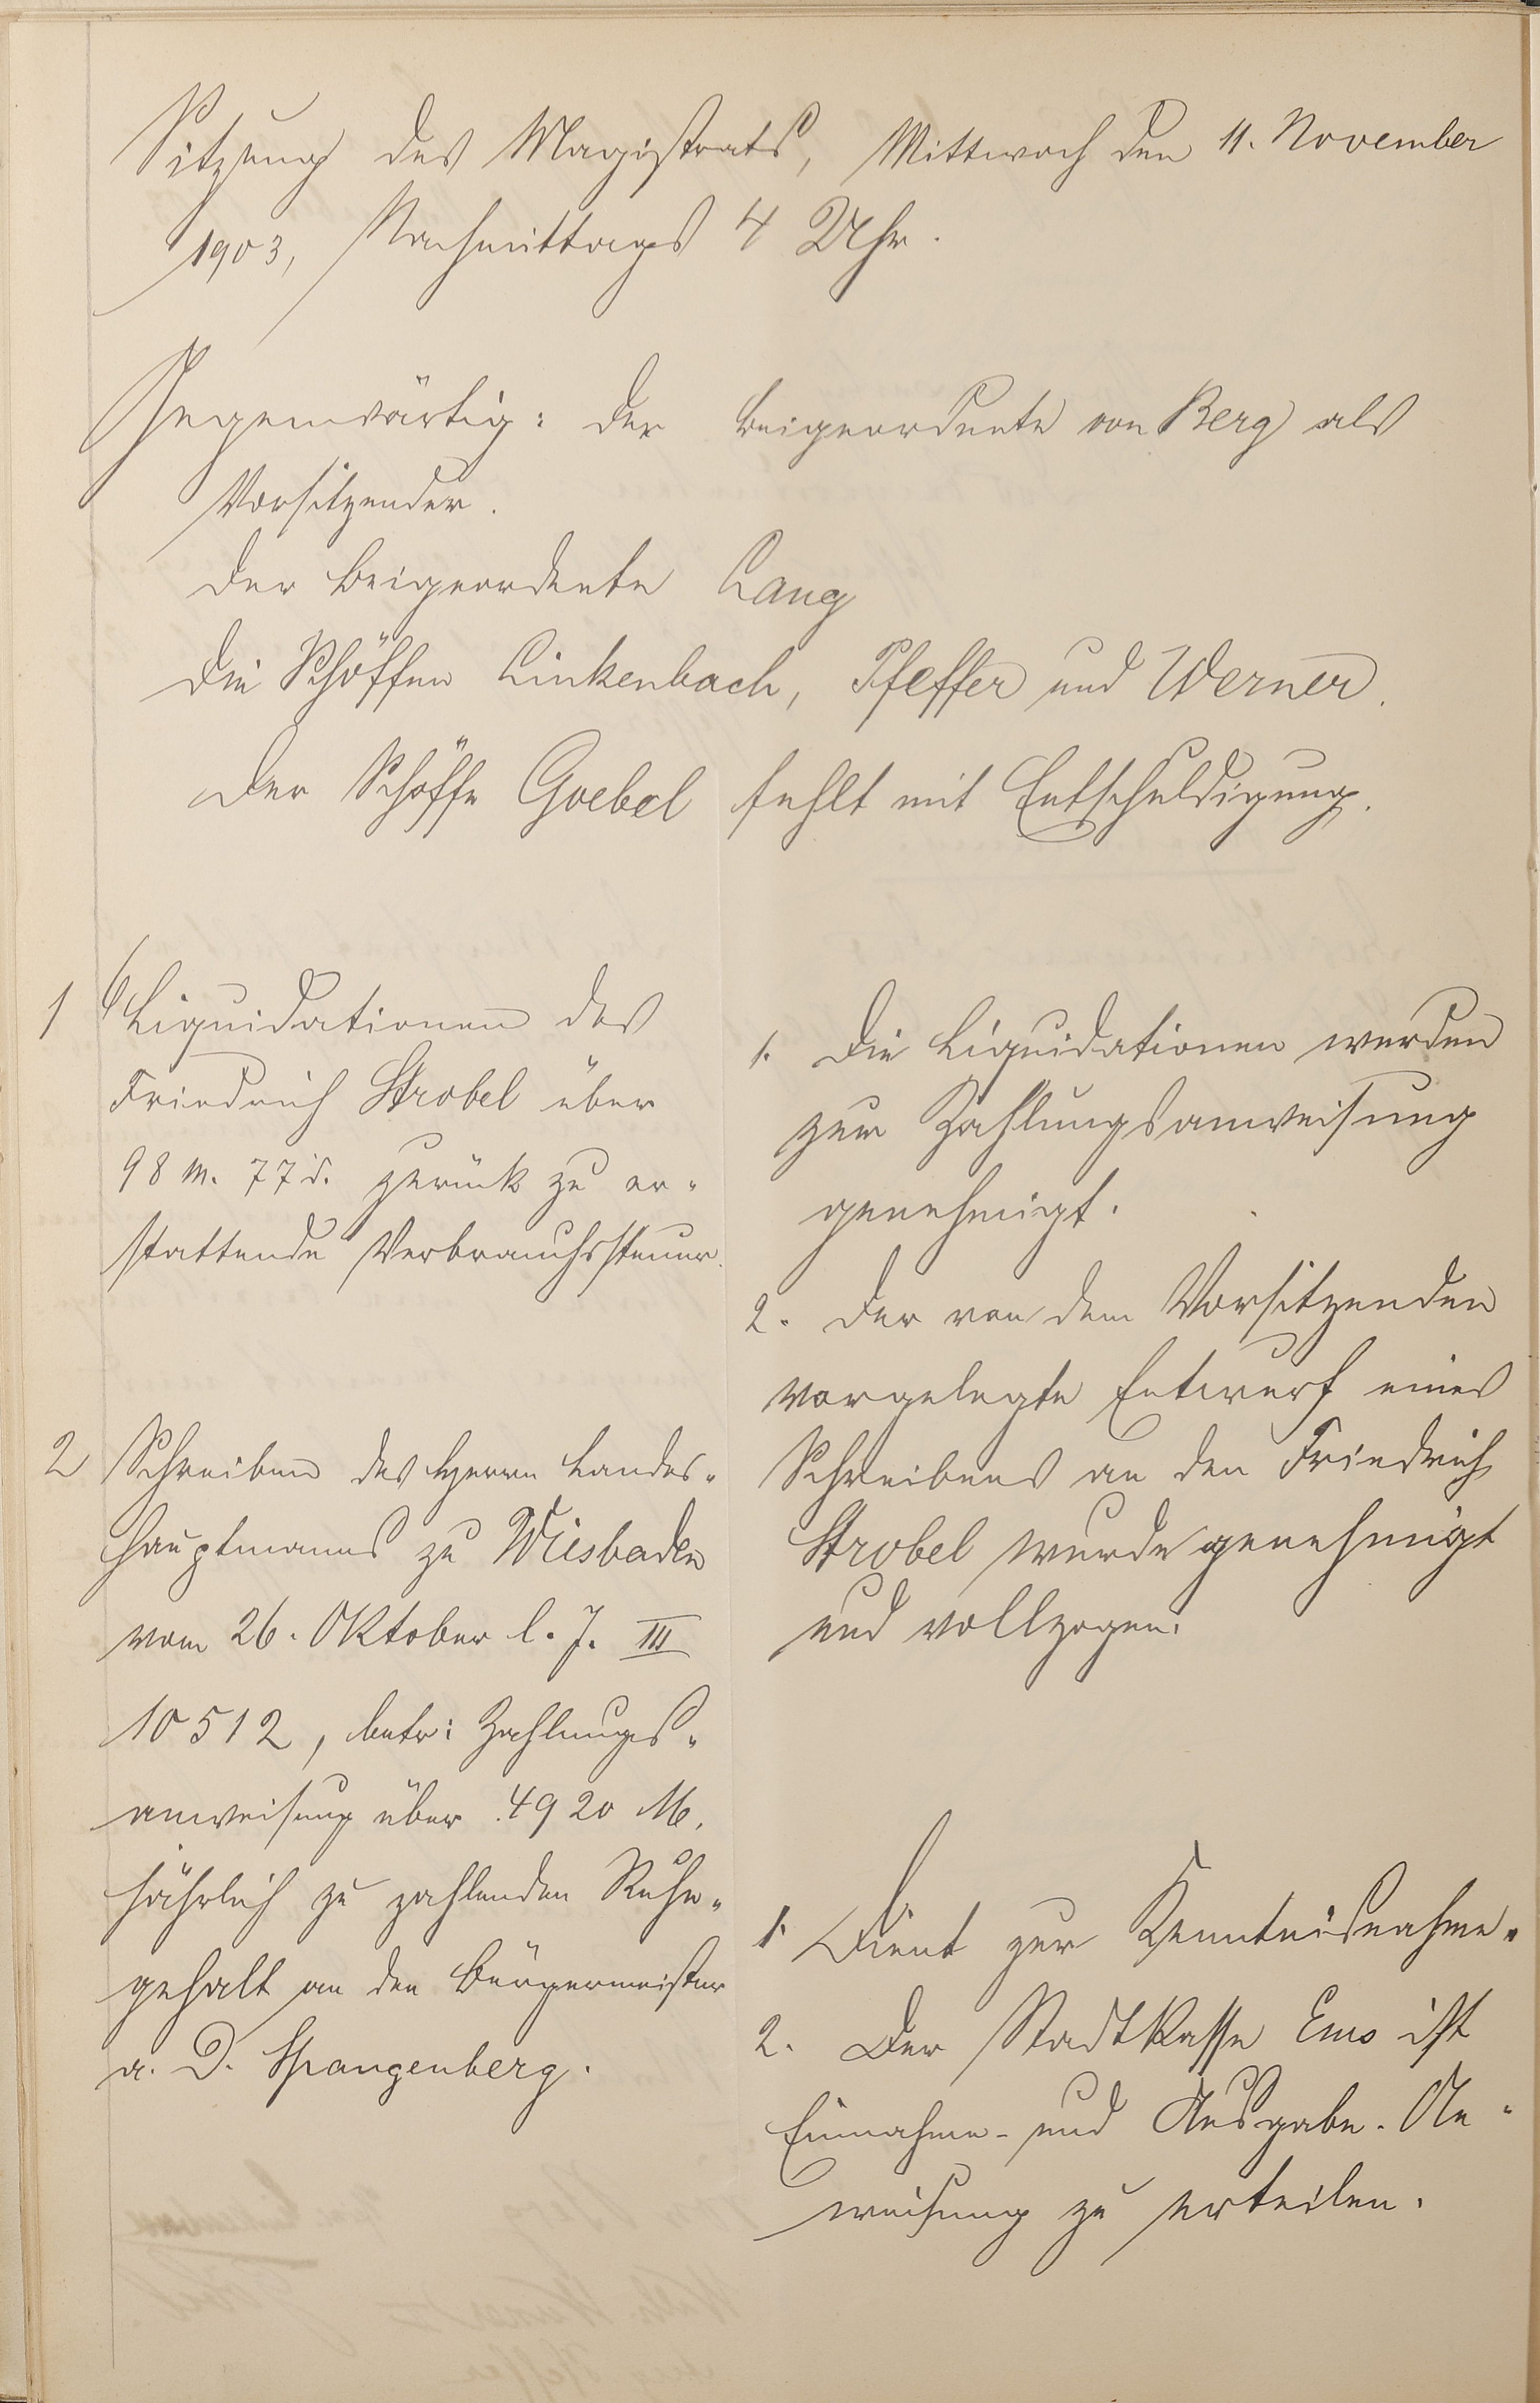 Sitzung des Magistrats, Mittwoch den 11. November
1903, Nachmittags 4 Uhr.
Gegenwärtig: der Beigeordnete von Berg als
Vorsitzender.
der Beigeordnete Lang
die Schöffen Linkenbach, Pfeffer und Werner.
der Schöffe Goebel fehlt mit Entschuldigung.
1 Liquidationen des
Friedrich Strobel über
98 M. 77 d. zurück zu er-
stattende Verbrauchssteuer.
1. Die Liquidationen werden
zur Zahlungsanweisung
genehmigt.
2. Der von dem Vorsitzenden
vorgelegte Entwurf eines
Schreibens an den Friedrich
Strobel wurde genehmigt
und vollzogen.
2 Schreiben des Herrn Landes-
hauptmanns zu Wiesbaden
vom 26. Oktober l. J. III
10512, betr: Zahlungs-
anweisung über 4920 M.
jährlich zu zahlenden Ruhe-
gehalt an den Bürgermeister
a. D. Spangenberg.
1. Dient zur Kenntnisnahme.
2. Der Stadtkasse Ems ist
Einnahme- und Ausgabe-An-
weisung zu erteilen.